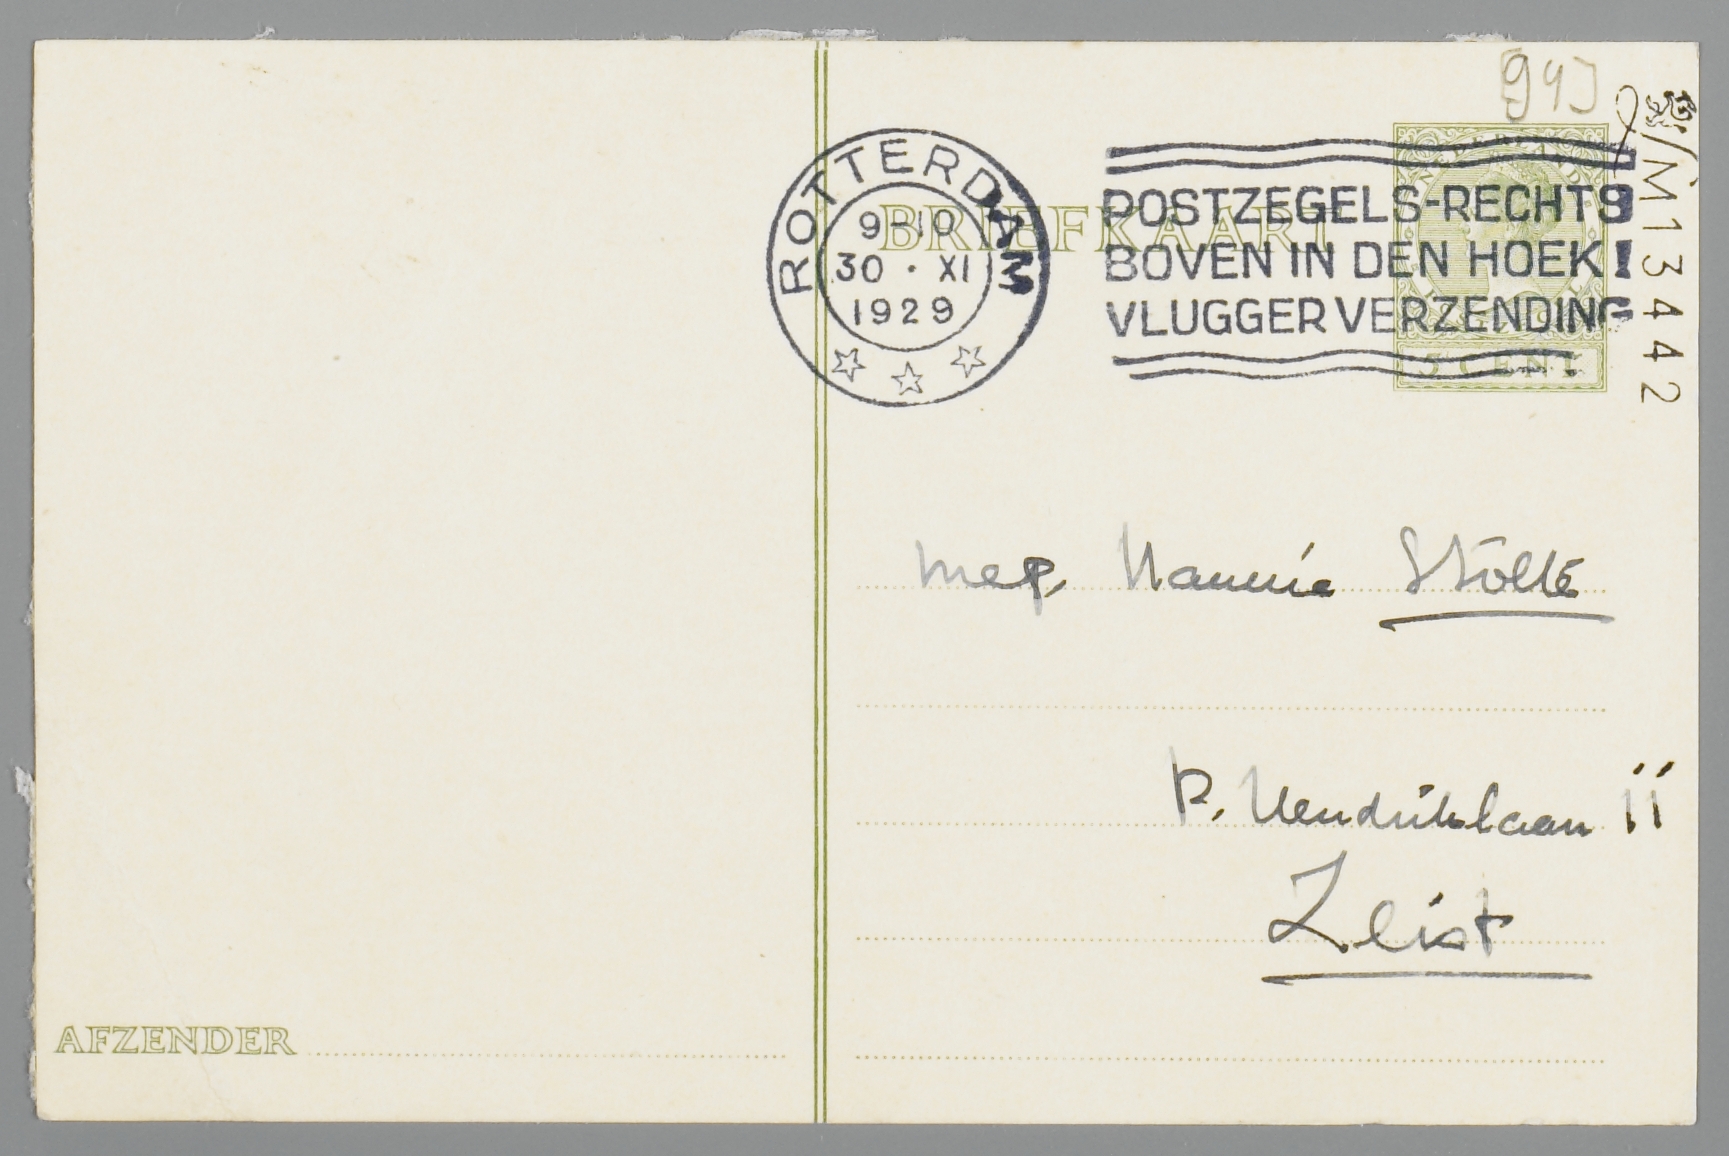 94J
M13442
ROTTERDAM
9-10
30 · XI
1929
POSTZEGELS-RECHTS
BOVEN IN DEN HOEK!
VLUGGER VERZENDING
BRIEFKAART
NEDERLAND
5 CENT
mej. Nannie Stolte
P. Hendriklaan 11
Zeist
AFZENDER